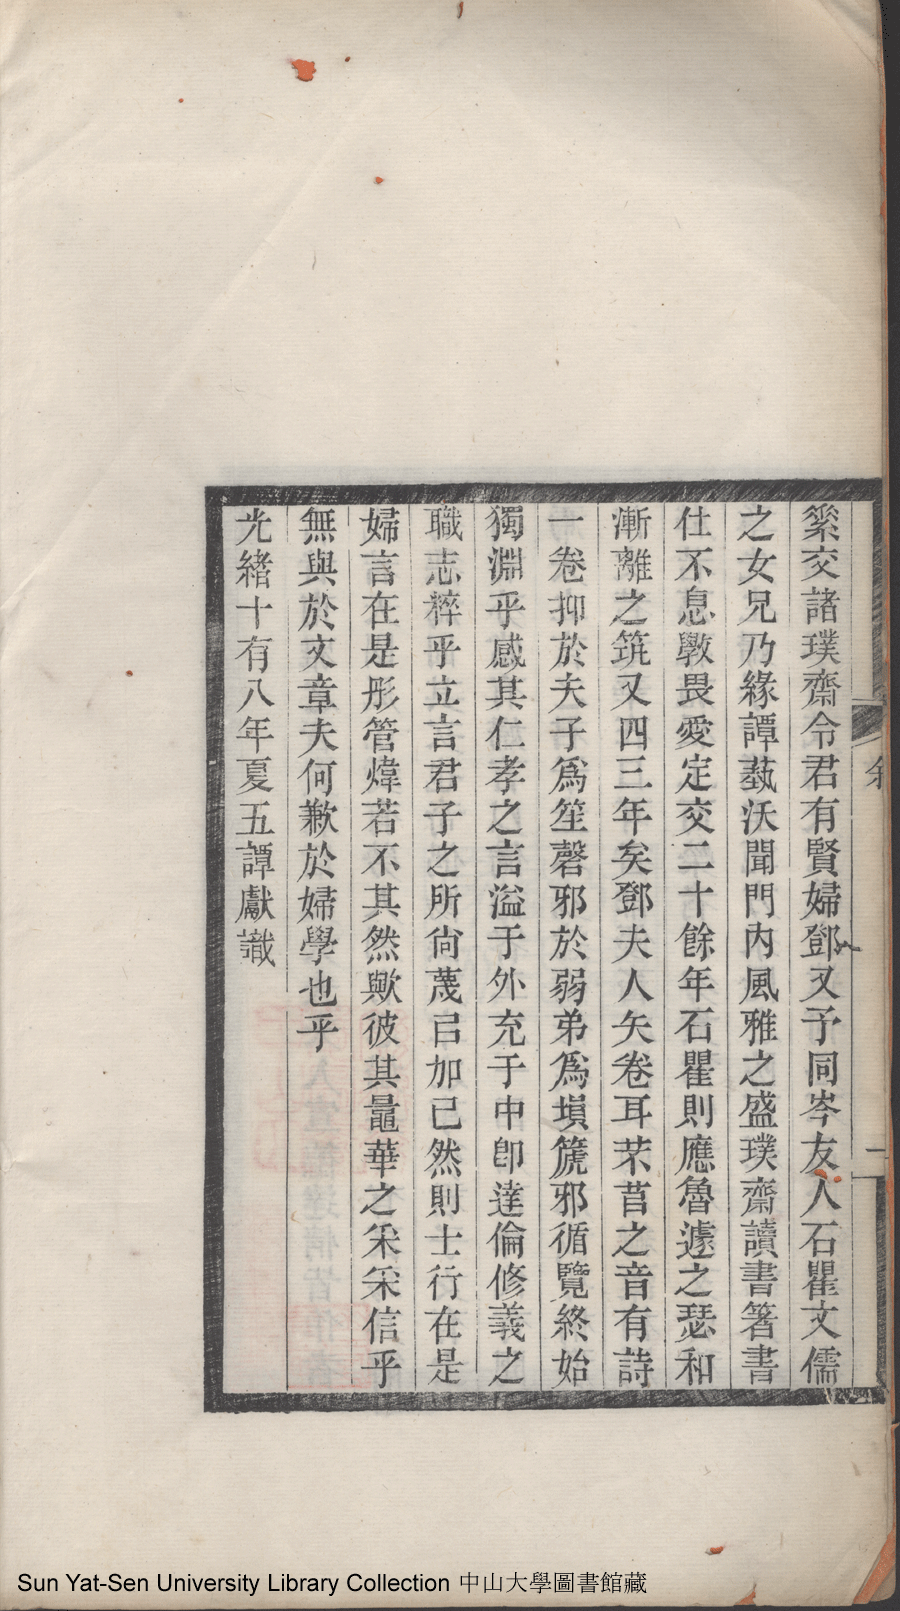 縏交諸璞齋令君有賢婦鄧又予同岑友人石瞿文儒
之女兄乃緣譚蓺沃聞門內風雅之盛璞齋讀書箸書
仕不息斆畏愛定交二十餘年石瞿則應魯遽之瑟和
漸離之筑又四三年矣鄧夫人矢卷耳芣苢之音有詩
一卷抑於夫子爲笙磬邪於弱弟爲塤箎邪循覽終始
獨淵乎感其仁孝之言溢于外充于中卽達倫修義之
職志粹乎立言君子之所尙蔑㠯加已然則士行在是
婦言在是彤管煒若不其然歟彼其鼂華之采采信乎
無與於文章夫何歉於婦學也乎
光緒十有八年夏五譚獻識
一
Sun Yat-Sen University Library Collection 中山大學圖書館藏